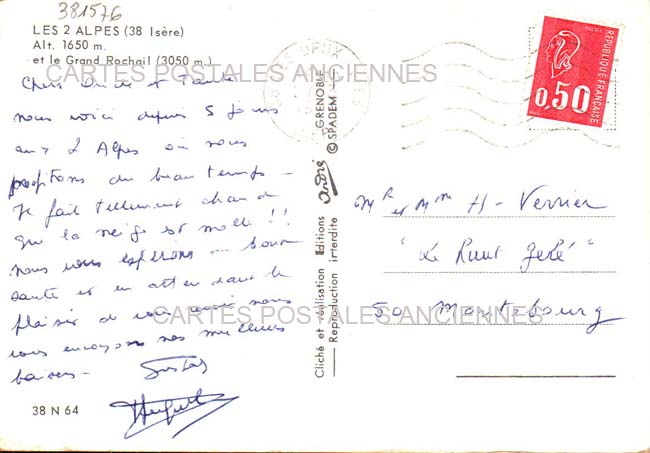 381576
LES 2 ALPES (38 Isère)
Alt. 1650 m.
et le Grand Rochail (3050 m.)
CARTES POSTALES ANCIENNES
Chers Oncle et Tante
nous voici depuis 5 jours
aux 2 Alpes où nous
profitons du beau temps -
Il fait tellement chaud
que la neige est molle !!
nous vous espérons en bonne
santé et en attendant le
plaisir de vous avoir nous
vous envoyons nos meilleurs
baisers -
38 N 64
Cliché et réalisation Editions André GRENOBLE
Reproduction interdite © SPADEM
RÉPUBLIQUE FRANÇAISE
POSTES
0,50
Mr et Mme H - Verrier
"Le
50 - Montebourg
CARTES POSTALES ANCIENNES